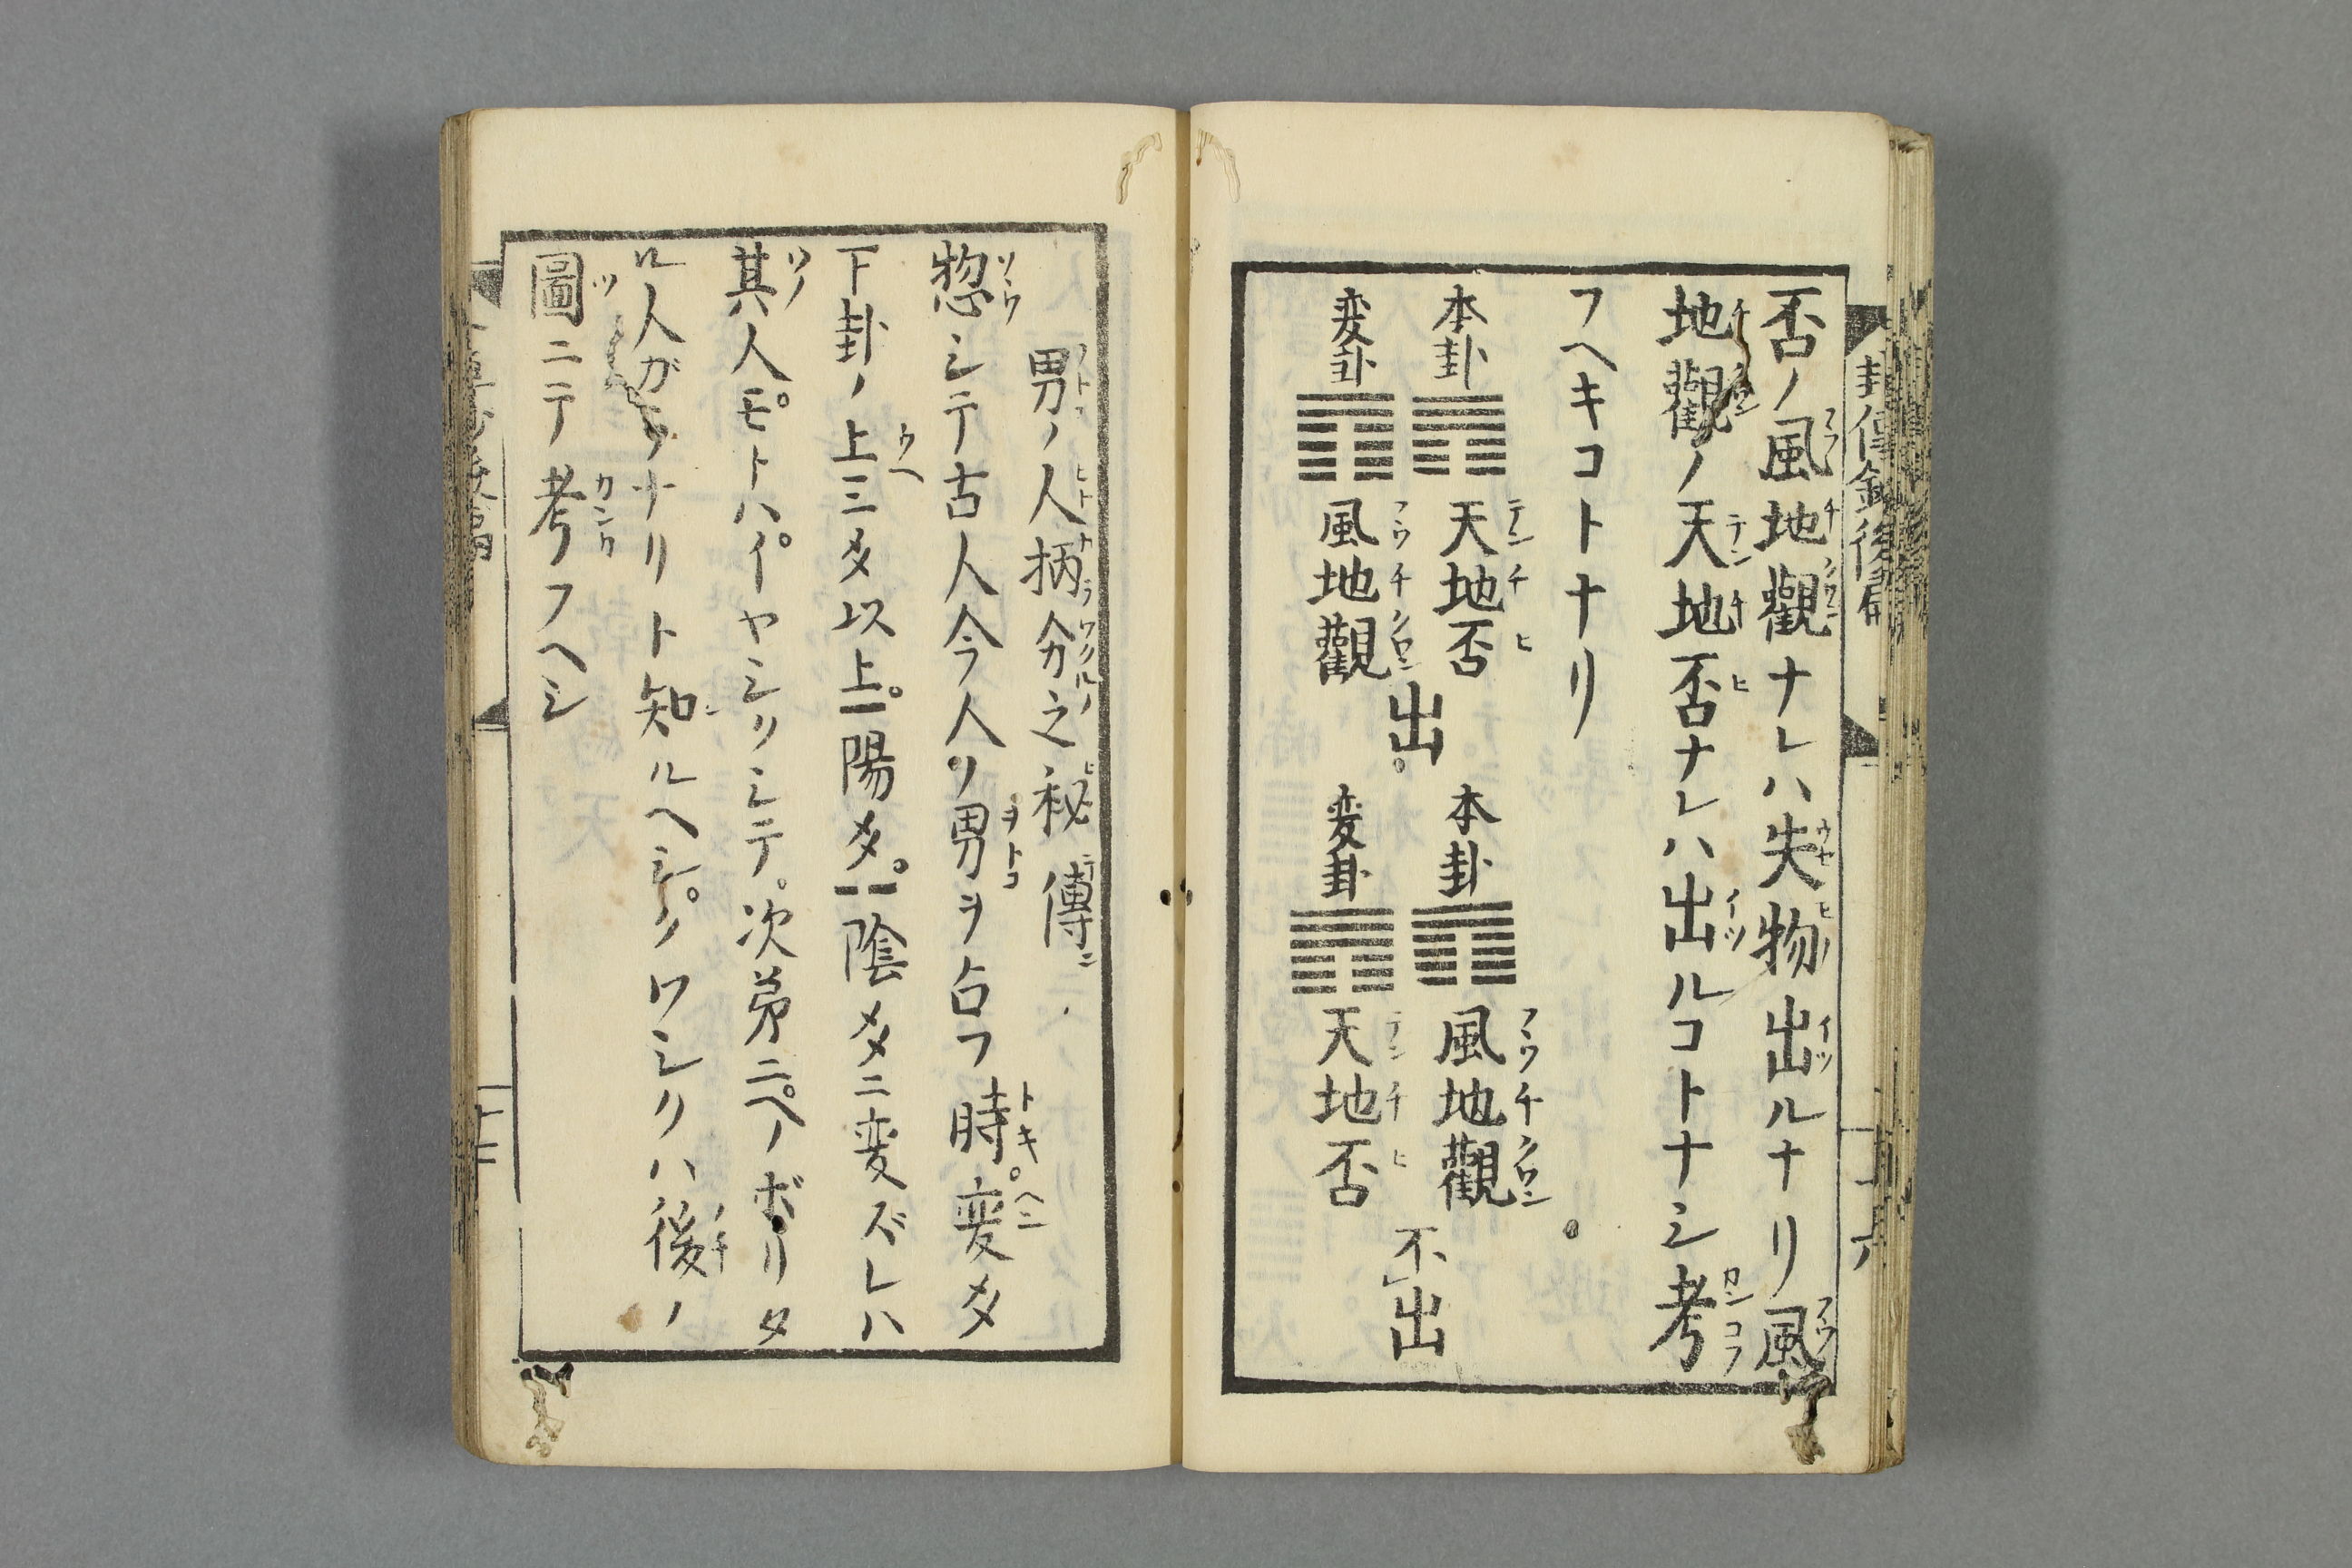 否ノ風地觀ナレハ失物出ルナリ風
地觀ノ天地否ナレハ出ルコトナシ考
フヘキコトナリ
本卦 天地否
変卦 風地觀
出
本卦 風地觀
変卦 天地否
不出
男ノ人柄分之秘傳
惣シテ古人今人リ男ヲ占フ時。変爻
下卦ノ上三爻以上。陽爻。陰爻ニ変ズレハ
其人モ。トハイ。ヤシリシテ。次第ニ。ヘノボリタ
ル人ガラナリト知ルヘシ。ソワシリハ後ノ
圖ニテ考フヘシ